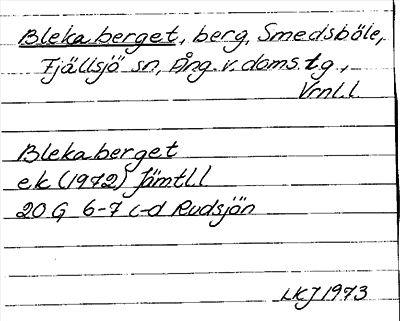 Blekaberget, berg, Smedsböle,
Fjällsjö sn, Ång. v. doms. tg,
Vrnl. l
Blekaberget
ek (1972) Jämtl. l
20 G 6-7 c-d Rudsjön
LKJ 1973